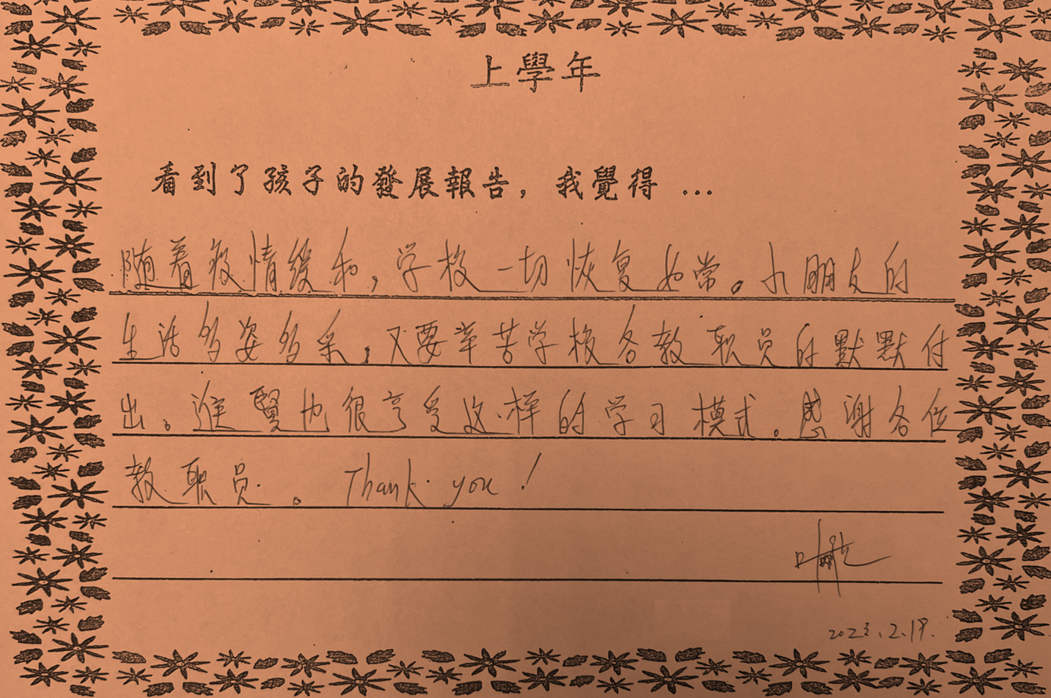 上學年
看到了孩子的發展報告，我覺得 ...
随着疫情缓和，学校一切恢复如常。小朋友的
生活多姿多采，又要辛苦学校各教职员的默默付
出。進賢也很享受这样的学习模式。感谢各位
教职员。Thank you!
2023.2.19.